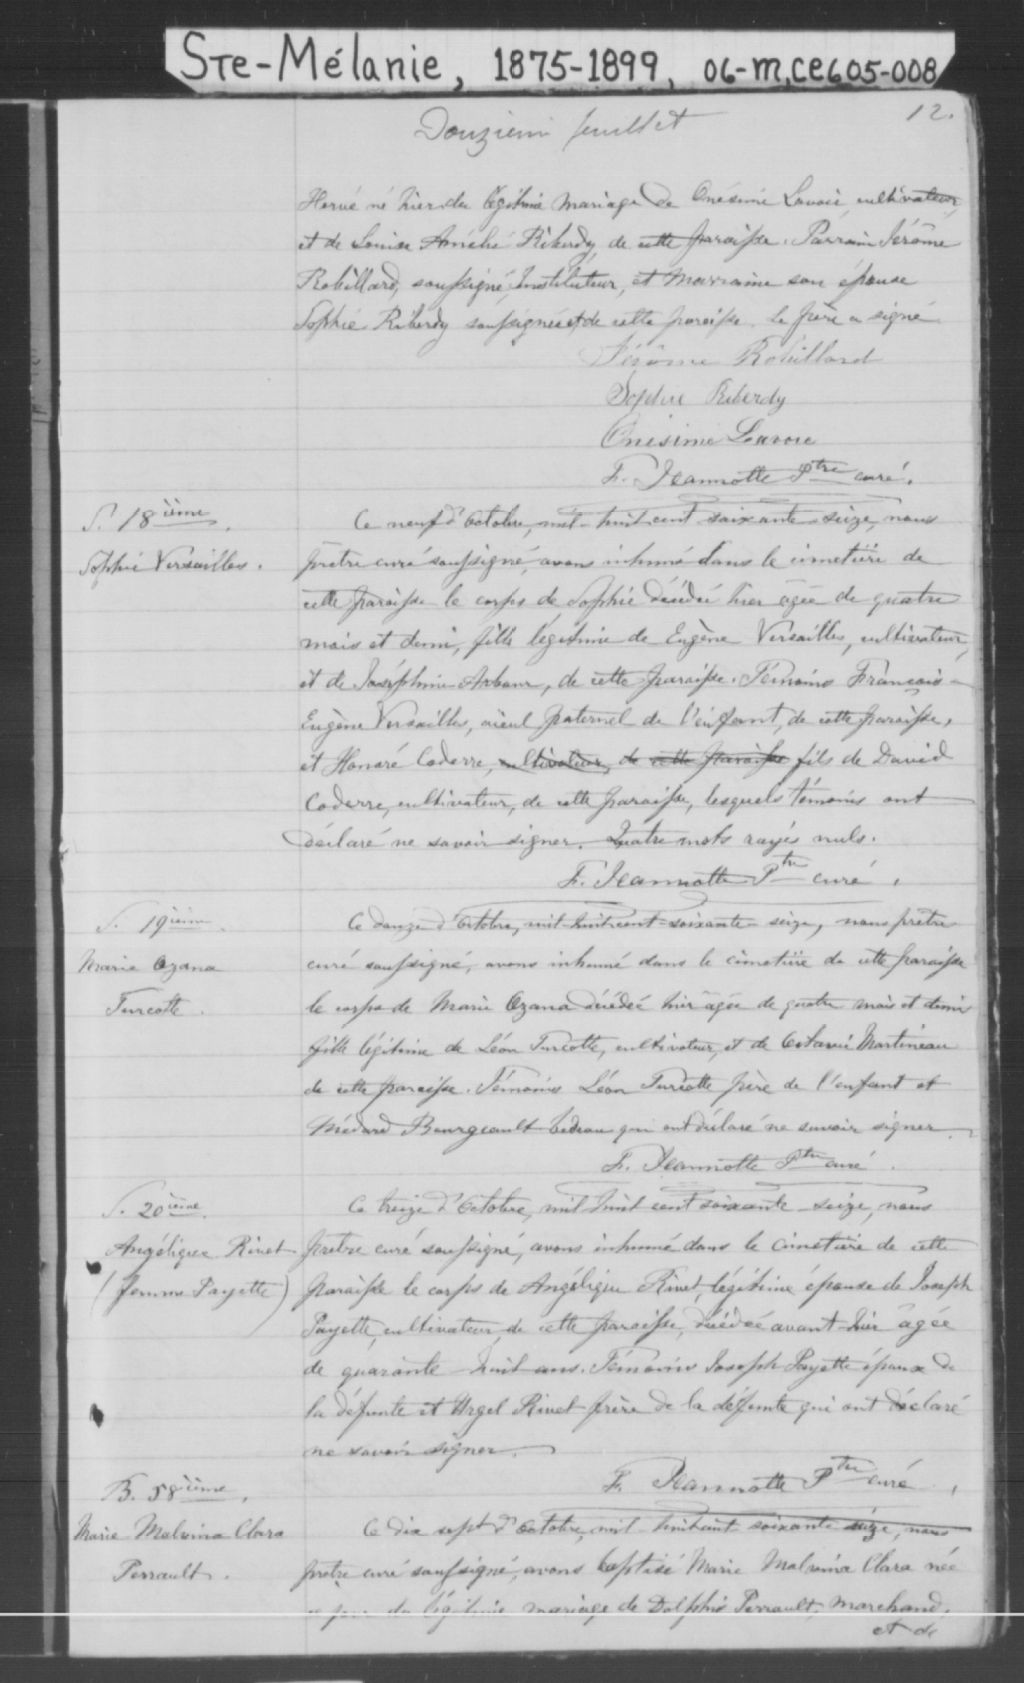 Ste-Mélanie, 1875-1899, 06-M,CE605-008
12.
Douzièm feuillet
Hervé né hier du légitime mariage de Onésime Lavoie, cultivateur,
et de Louise Amélie Riberdy de cette paroisse. Parrain Jérôme
Robillard, soussigné, Instituteur, et Marraine son épouse
Sophie Riberdy soussignée et de cette paroisse. Le père a signé
Jérôme Robillard
Sophie Riberdy
Onésime Lavoie
F. Jeannotte Ptre curé.
S. 18ième.
Sophie Versailles.
Ce neuf d'Octobre, mil-huit cent-soixante-seize, nous
prêtre curé soussigné, avons inhumé dans le cimetière de
cette paroisse le corps de Sophie décédée hier âgée de quatre
mois et demi, fille légitime de Eugène Versailles, cultivateur,
et de Joséphine Arbour, de cette paroisse. Témoins François-
Eugène Versailles, aïeul paternel de l'enfant, de cette paroisse,
et Honoré Coderre, cultivateur, de cette paroisse fils de David
Coderre, cultivateur, de cette paroisse, lesquels témoins ont
déclaré ne savoir signer. Quatre mots rayés nuls.
F. Jeannotte Ptre curé.
S. 19ième.
Marie Ozana
Turcotte.
Ce douze d'Octobre, mil-huit cent-soixante-seize, nous prêtre
curé soussigné, avons inhumé dans le cimetière de cette paroisse
le corps de Marie Ozana décédée hier âgée de quatre mois et demi
fille légitime de Léon Turcotte, cultivateur, et de Octavie Martineau
de cette paroisse. Témoins Léon Turcotte père de l'enfant et
Médard Bourgeault bedeau qui ont déclaré ne savoir signer.
F. Jeannotte Ptre curé.
S. 20ième.
Angélique Rivet
(femme Payette)
Ce treize d'Octobre, mil huit cent soixante-seize, nous
prêtre curé soussigné, avons inhumé dans le cimetière de cette
paroisse le corps de Angélique Rivet, légitime épouse de Joseph
Payette, cultivateur de cette paroisse, décédée avant-hier âgée
de quarante-huit ans. Témoins Joseph Payette époux de
la défunte et Urgel Rivet frère de la défunte qui ont déclaré
ne savoir signer.
F. Jeannotte Ptre curé.
B. 58ième.
Marie Malvina Clara
Perrault.
Ce dix sept d'Octobre, mil-huit cent soixante seize, nous
prêtre curé soussigné, avons baptisé Marie Malvina Clara née
ce jour du légitime mariage de Dolphis Perrault, marchand,
et de